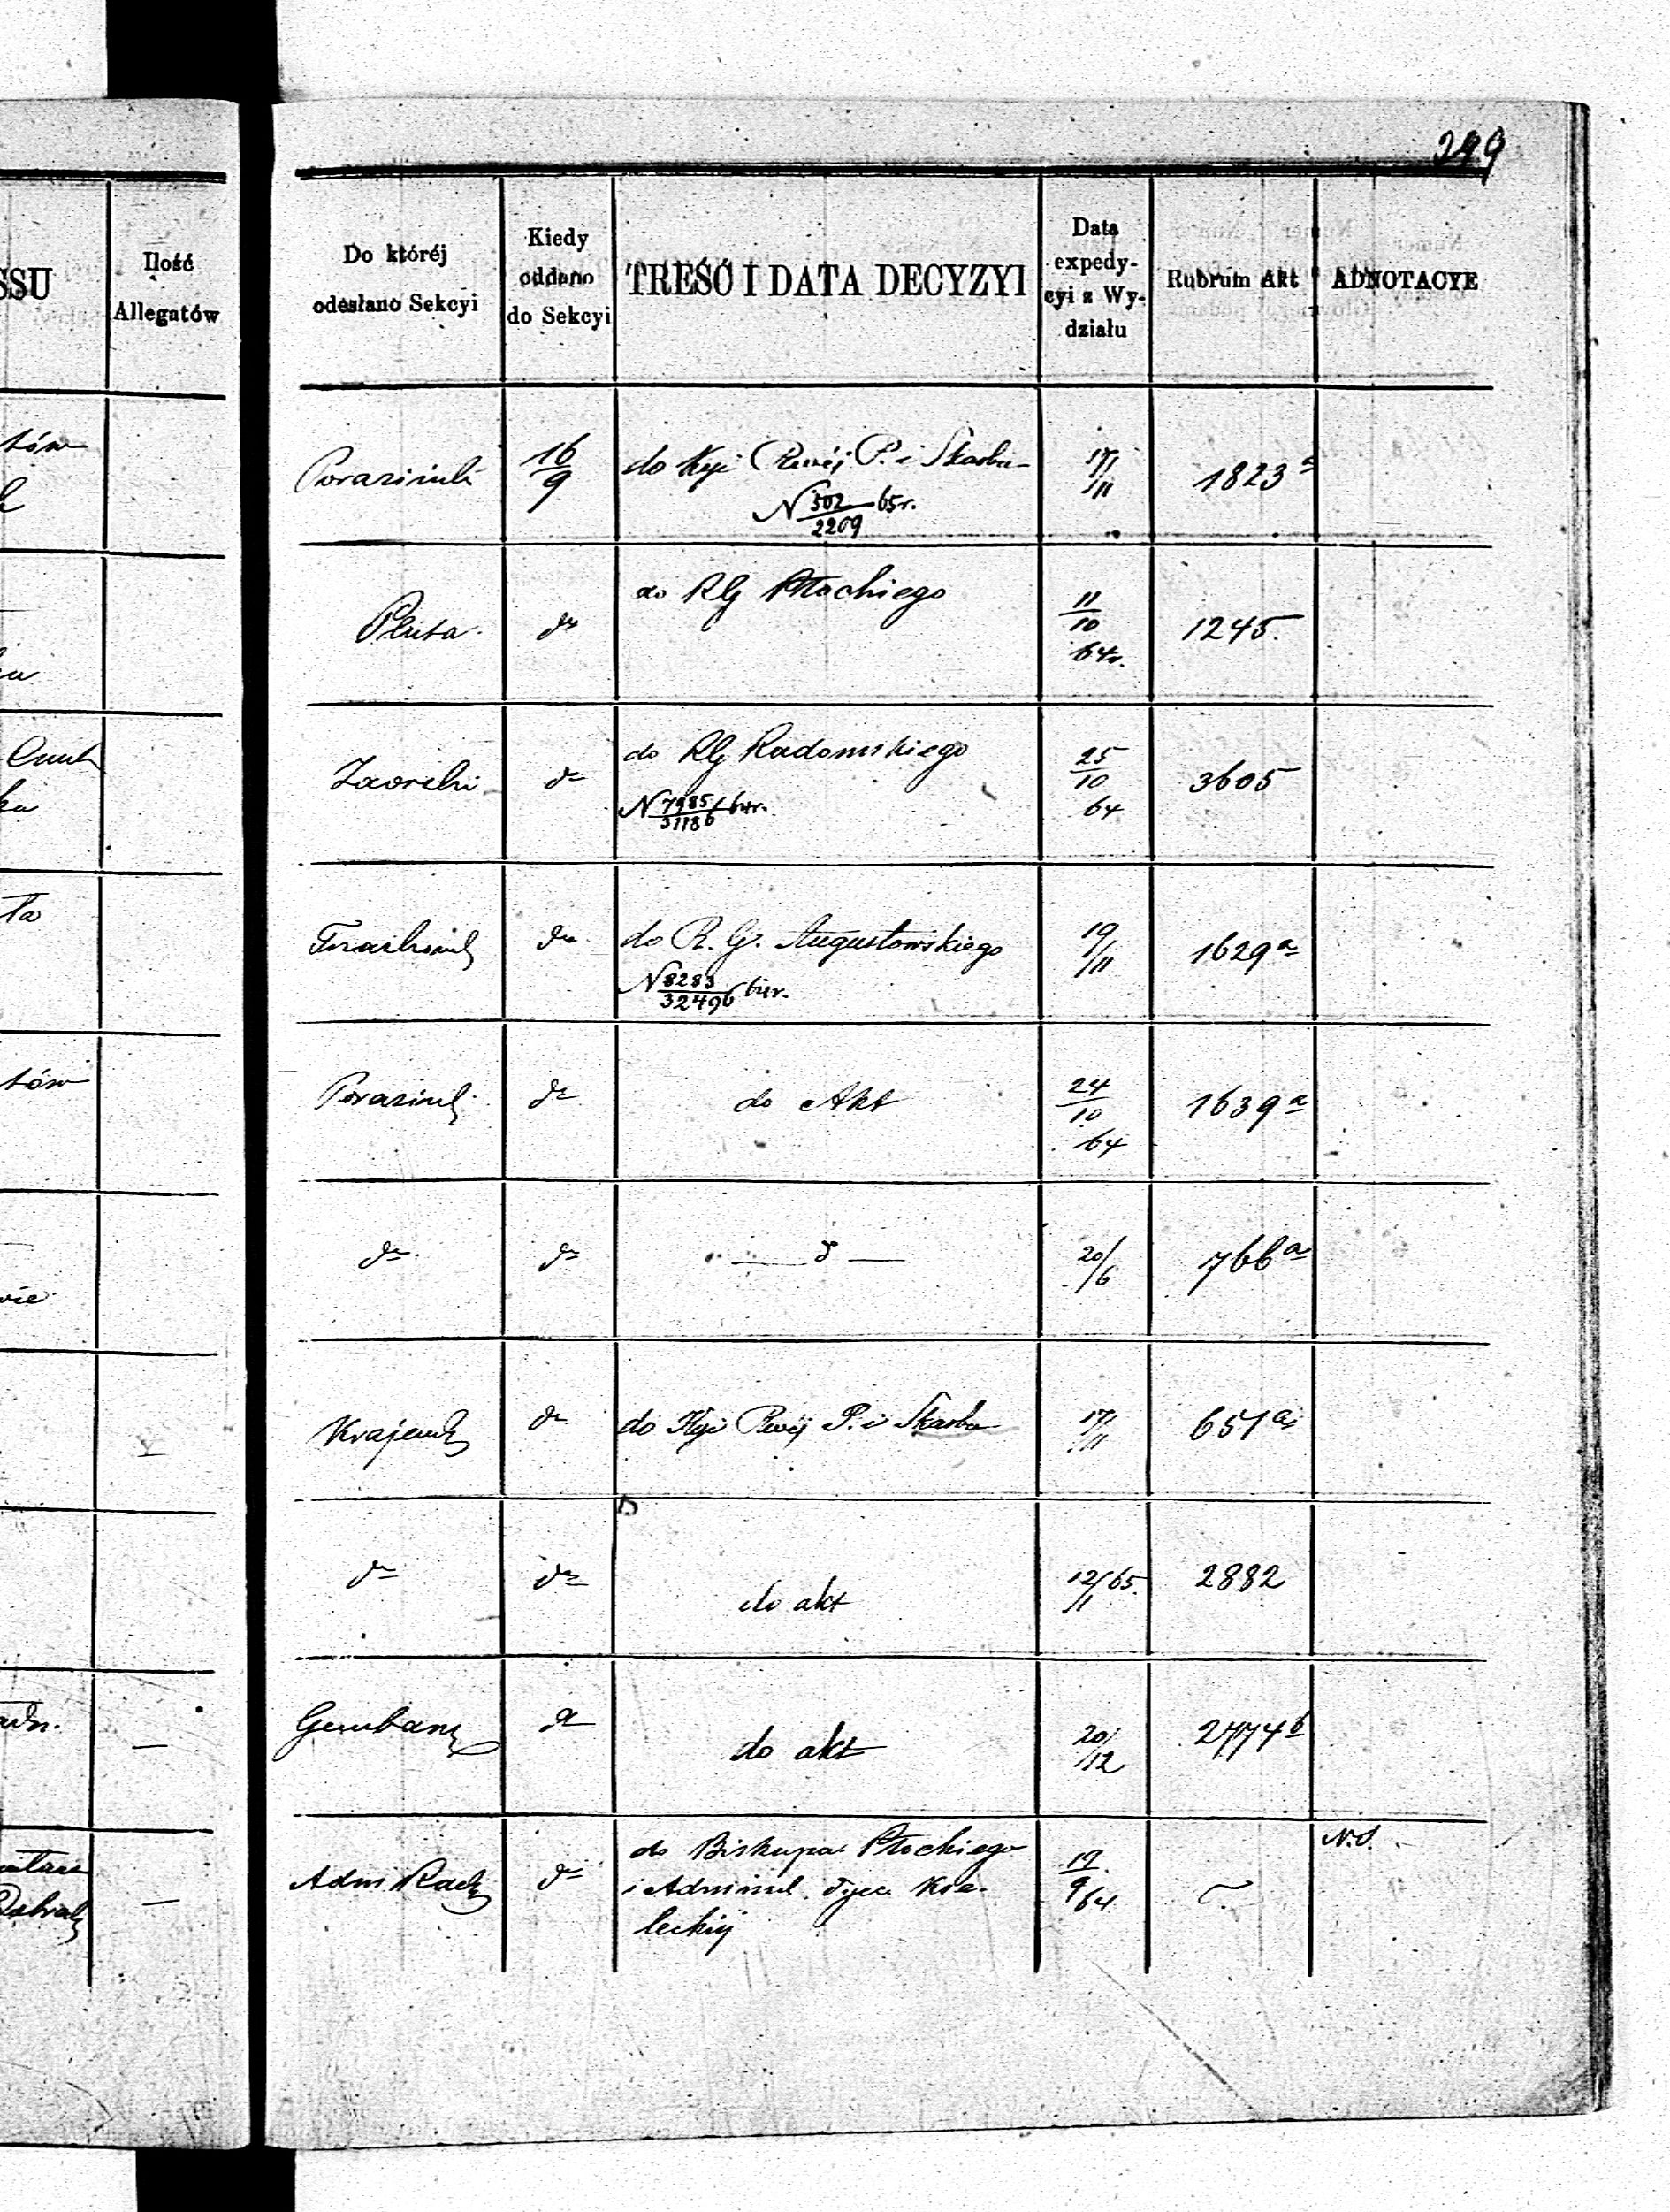 299
SSU
Ilość
Allegatów
Do któréj
odesłano Sekcyi
Kiedy
oddano
do Sekcyi
TREŚĆ I DATA DECYZYI
Data
expedy-
cyi z Wy-
działu
Rubrum Akt
ADNOTACYE
tów
16/9
do Kyi Rwéj P. i Skarbu
17/11
1823 a
N 502/2209 65r.
Pluta
do
do RG Płockiego
11/10
64r.
1245.
Zaorski
do
do RG Radomskiego
25/10
64
3605
N 7985/31186 64r.
ta
do
do R. G. Augustowskiego
19/11
1629 a
N 8283/32496 64r.
tów
do
do Akt
24/10
64
1639 a
do
do
— d —
20/6
766 a
Krajews
do
do Kyi Rwéj P. i Skarbu
17/11
651 a
do
do
do akt
12/1 65.
2882
do
do akt
20/12
2774 b
Adm Rach
do
do Biskupa Płockiego
i Adminis. Dyec. Kie-
leckiéj
19/9 64
N.S.